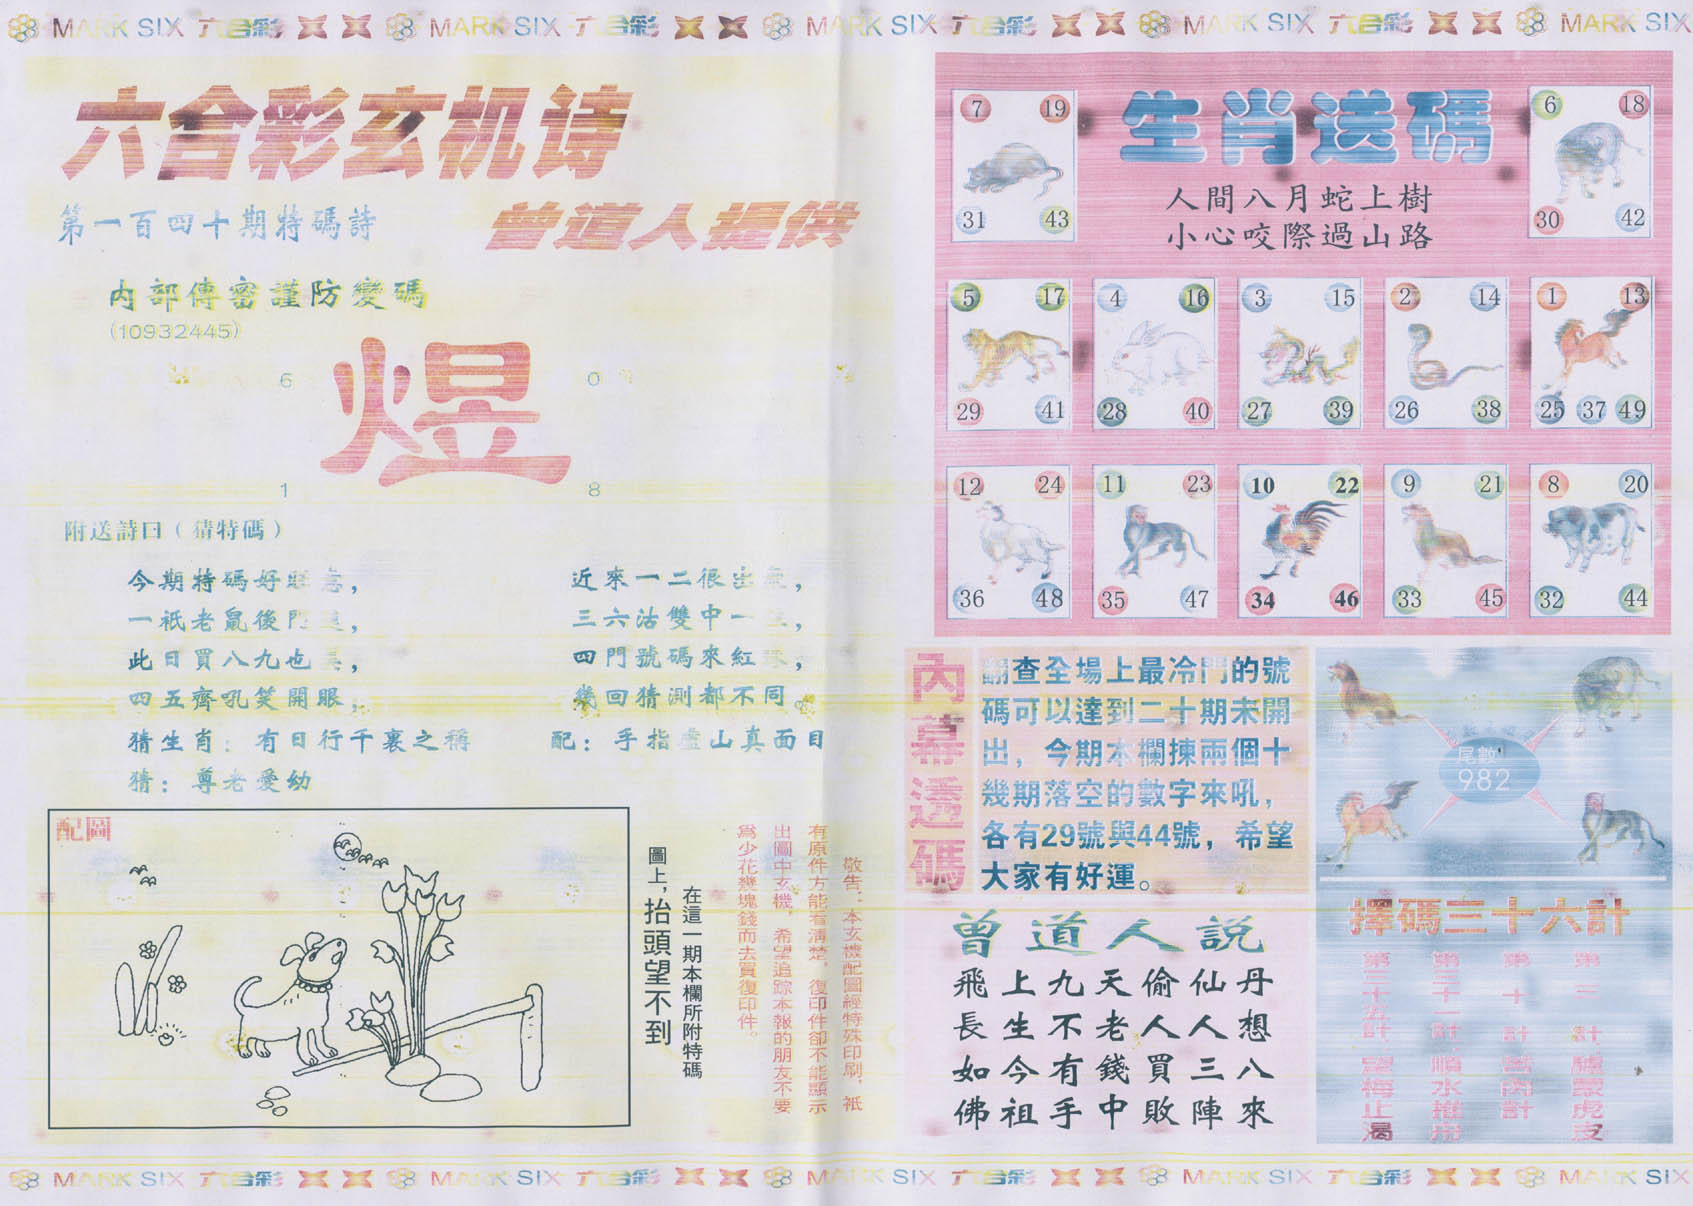 MARK SIX 六合彩 MARK SIX 六合彩 MARK SIX 六合彩 MARK SIX 六合彩 MARK SIX
六合彩玄机诗
第一百四十期特碼詩
曾道人提供
内部傳密謹防變碼
(10932445)
6 0
煜
1 8
附送詩曰（猜特碼）
今期特碼好
一祇老鼠後門
此日買八九也
四五齊吼笑開眼，
猜生肖：有日行千裏之稱
猜：尊老愛幼
近來一二很出
三六沽雙中一
四門號碼來紅
幾回猜測都不同
配：手指虛山真面目
配圖
圖上，抬頭望不到
在這一期本欄所附特碼
敬告：本玄機配圖經特殊印刷，祇
有原件方能看清楚，復印件卻不能顯示
出圖中玄機，希望追踪本報的朋友不要
爲少花幾塊錢而去買復印件。
生肖送碼
人間八月蛇上樹
小心咬際過山路
7 19
31 43
6 18
30 42
5 17
29 41
4 16
28 40
3 15
27 39
2 14
26 38
1 13
25 37 49
12 24
36 48
11 23
35 47
10 22
34 46
9 21
33 45
8 20
32 44
內幕透碼
翻查全場上最冷門的號
碼可以達到二十期未開
出，今期本欄揀兩個十
幾期落空的數字來吼，
各有29號與44號，希望
大家有好運。
尾數
982
曾道人説
飛上九天偷仙丹
長生不老人人想
如今有錢買三八
佛祖手中敗陣來
擇碼三十六計
第三計
第十計 苦肉計
第三十一計 順水推舟
第三十五計 望梅止渴
MARK SIX 六合彩 MARK SIX 六合彩 MARK SIX 六合彩 MARK SIX 六合彩 MARK SIX